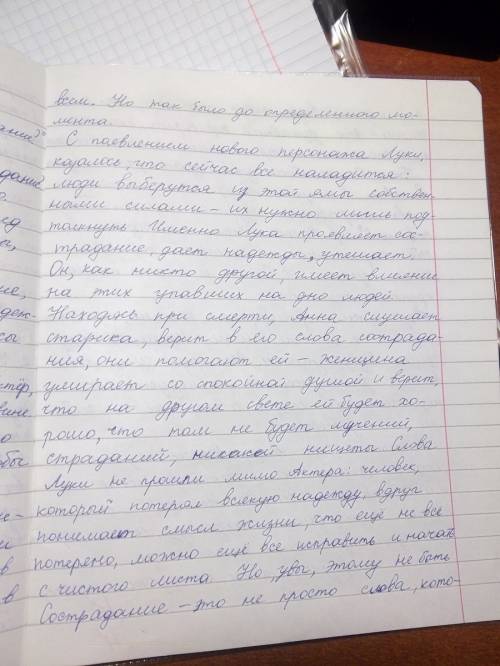 всем. Но так было до определенного мо-
мента.
С появлением нового персонажа Луки,
казалось, что сейчас все наладится:
люди выберутся из этой ямы собствен-
ными силами – их нужно лишь под-
толкнуть. Именно Лука проявляет сос-
традание, дает надежды, утешает.
Он, как никто другой, имеет влияние
на этих упавших на дно людей.
Находясь при смерти, Анна слушает
старика, верит в его слова сострада-
ния, они помогают ей – женщина
умирает со спокойной душой и верит,
что на другом свете ей будет хо-
рошо, что там не будет мучений,
страданий, никакой нищеты. Слова
Луки не прошли мимо Актера: человек,
который потерял всякую надежду, вдруг
понимает смысл жизни, что ещё не все
потеряно, можно ещё все исправить и начать
с чистого листа. Но, увы, этому не быть.
Сострадание – это не просто слова, кото-